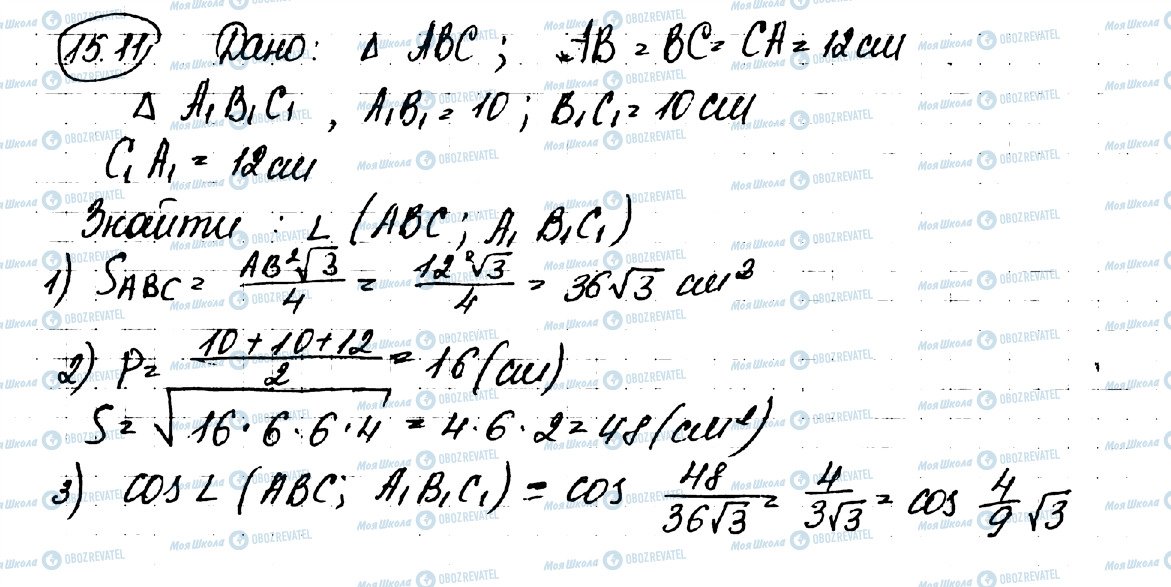 15.11. Дано: Δ ABC; AB = BC = CA = 12 см
Δ A₁B₁C₁, A₁B₁ = 10; B₁C₁ = 10 см
C₁A₁ = 12 см
Знайти: ∠(ABC; A₁B₁C₁)
1) S_ABC = AB²√3/4 = 12²√3/4 = 36√3 см²
2) P = (10+10+12)/2 = 16 (см)
S = √(16·6·6·4) = 4·6·2 = 48 (см²)
3) cos ∠(ABC; A₁B₁C₁) = cos 48/(36√3) = 4/(3√3) = cos 4/9 √3
МояШкола OBOZREVATEL